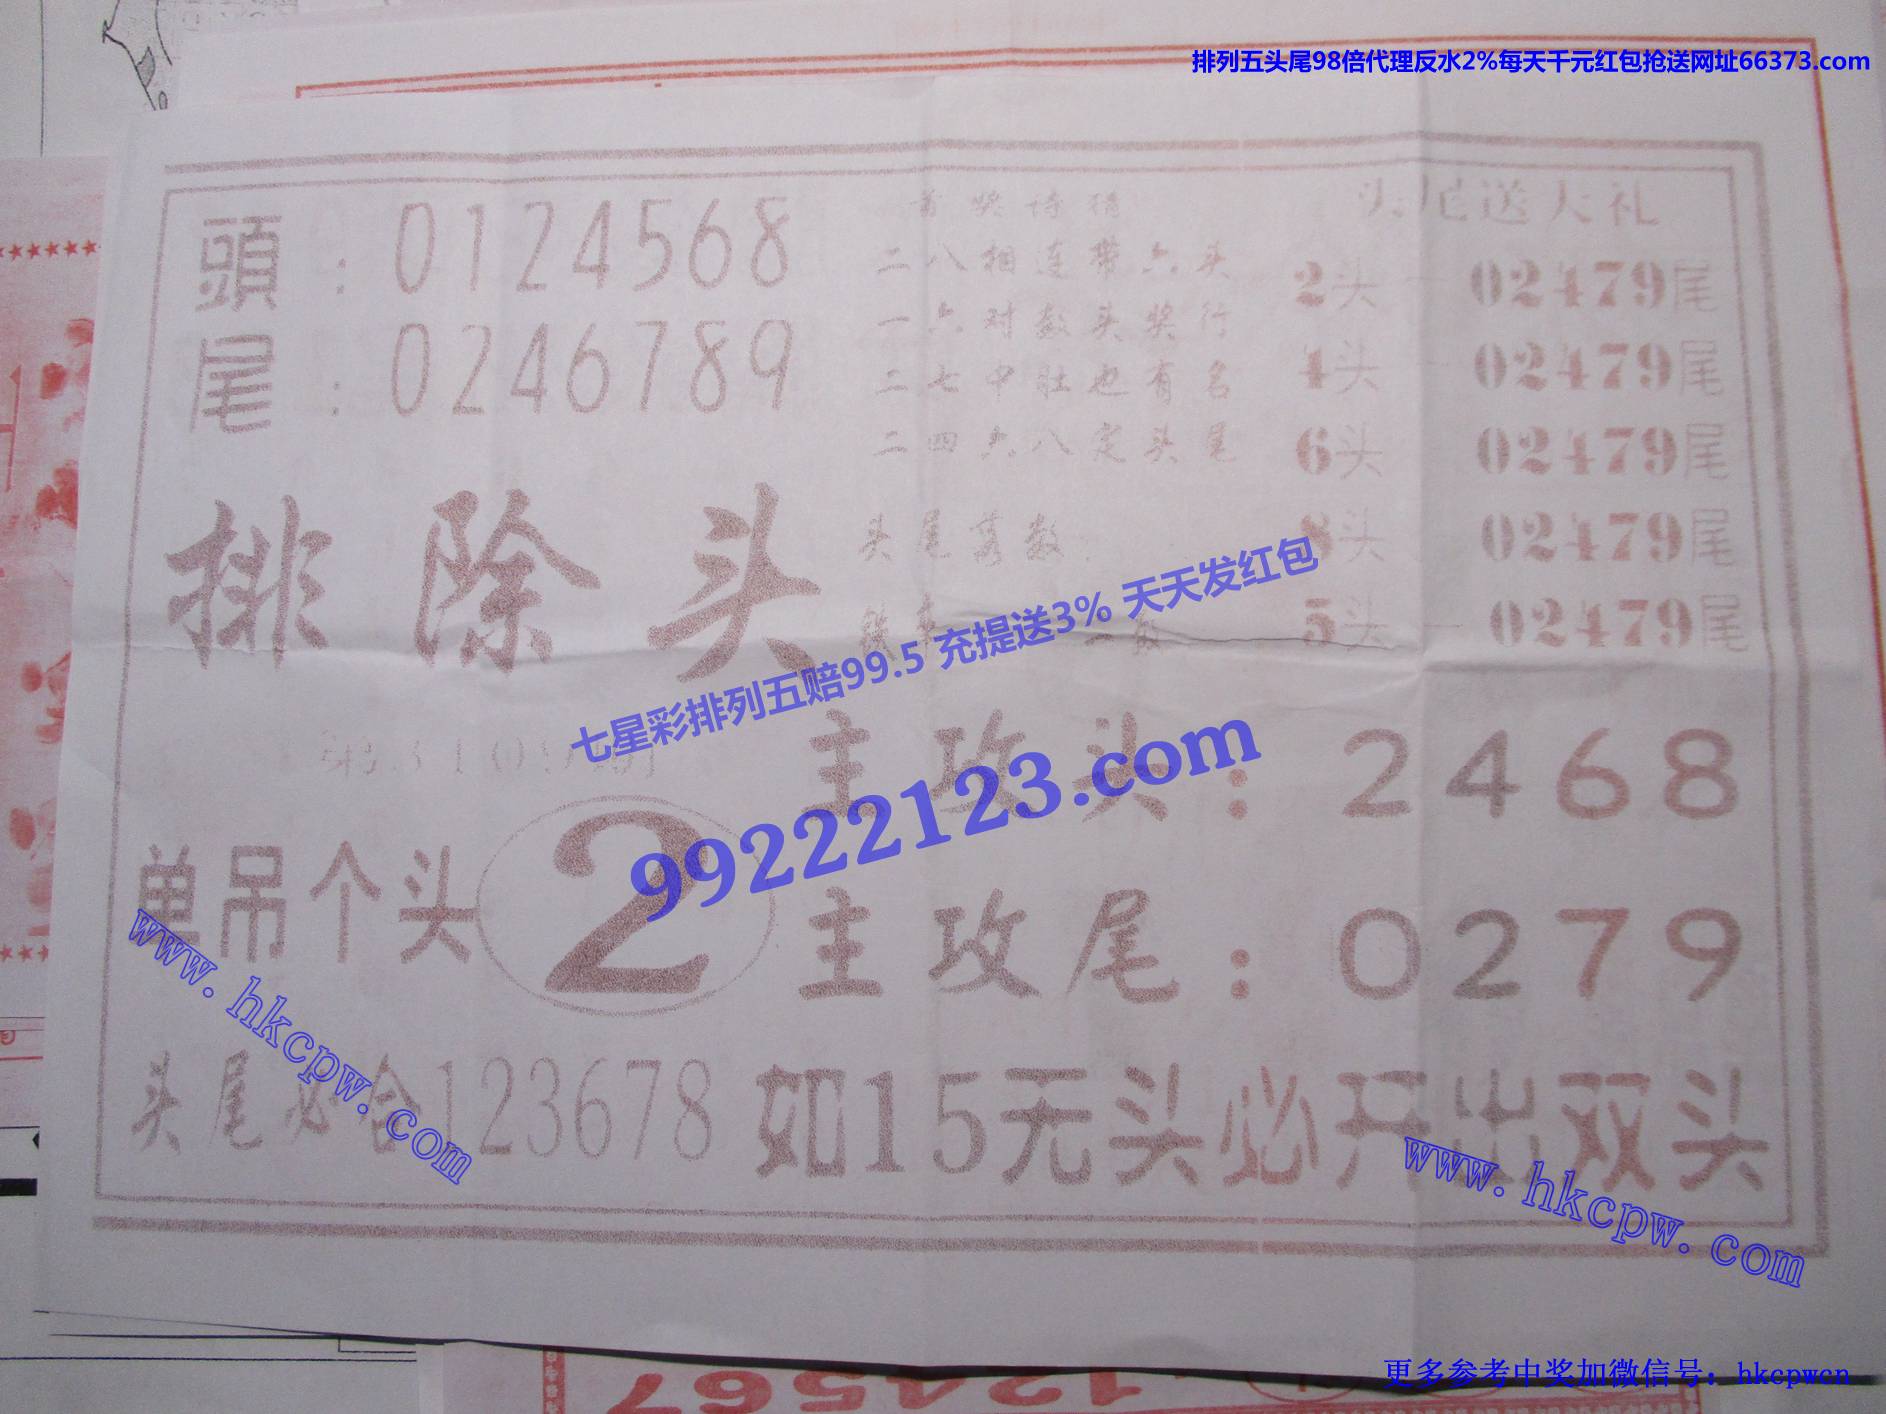 排列五头尾98倍代理反水2%每天千元红包抢送网址66373.com
頭：0124568
尾：0246789
首奖诗猜
二八相连带六头
一六对数头奖行
二七中肚也有名
二四六八定头尾
头尾送大礼
2头一02479尾
4头一02479尾
6头 02479尾
8头 02479尾
5头一02479尾
排除头
头尾落数：
七星彩排列五赔99.5 充提送3% 天天发红包
99222123.com
主攻头：2468
单吊个头2
主攻尾：0279
头尾必含123678
如15无头必开出双头
www.hkcpw.com
www.hkcpw.com
更多参考中奖加微信号：hkcpwcn
124567